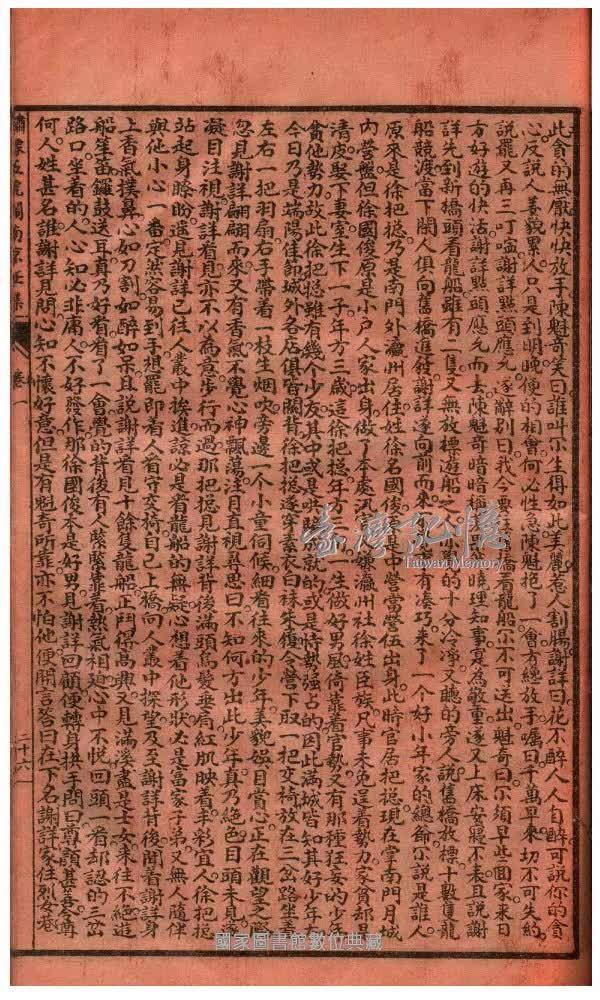 此貪的無厭快快放手陳魁奇笑曰誰叫尔生得如此美麗惹人割腸謝詳曰花不醉人人自醉可說你的貪
心反說人姜貌累人只是到明晚便的相會何必性急陳魁抱了一會方總放手囑曰千萬早來切不可失約
說罷又再三丁嚀謝詳點頭應允遂辭別曰我今要往舊橋看龍船尔不可送出魁奇曰尔須早些囬家來日
方好遊的快活謝詳點頭應允而去陳魁奇暗暗曉理知事寔為敬重遂又上床安寢不表且說謝
詳先到新橋頭看龍船雖有二隻又無放標遊船人對的十分冷淨又聽的旁人說舊橋放標十數隻龍
船競渡富下閑人俱向舊橋進發謝詳遂向前而來有湊巧來了一个好小年家的總爺尔說是誰人
原來是徐把挖乃是南門外瀛州居住姓徐名國俊是中營當營伍出身此時官居把挖現在掌南門月城
內營盤但徐國俊原是小户人家出身做了本處汛嫌瀛州社徐姓臣族凡事未免逞着勢力家貧却是
清皮娶下妻室生下一子年方三歲這徐把挖年方三一生做好男風倚靠着官勢又有那種狂妄的少年
貪他勢力故此徐把挖雖有幾个少友其中或是哄騙成就的或是恃勢强占的因此滿城皆知其好少年
今日乃是端陽佳節城外各店俱皆關背徐把挖遂穿素衣白袜朱履令營下取一把交椅放在三岔路坐着
左右一把羽扇右手帶着一枝生烟吹旁邊一个小童伺候細看往來的少年美貌娱目賞心正在觀望之際
忽見謝詳翩翩而來又有香氣不覺心神飄蕩注目直視善思曰不知何方出此少年真乃絶色曰頭未見
凝目注視謝詳看見亦不以為意步行而過那把挖見謝詳背後滿頭烏髮垂肩紅肌映着手彩宜人徐把挖
站起身睁盼遥見謝詳已往人叢中挨進諒必是看龍船的無疑心想着他形狀必是富家子弟又無隨伴
與他小心一番定然容易到手想罷即着人看守交椅自己上橋向人叢中探望及至謝詳背後聞着謝詳身
上香氣撲鼻心如刀割如醉如呆且說謝詳看見十餘隻龍船正鬥得高興又見滿溪盡是士女来往不絶遊
船笙笛鑼鼓送耳真乃好看看了一會覺的背後有人緊緊靠着熱氣相廹心中不悦回頭一看却認的三岔
路口坐着的人心知必非庸人不好發作那徐國俊本是好男見謝詳回顧便轉身拱手問曰尊顔甚善令尊
何人姓甚名誰謝詳見問心知不懷好意但是有魁奇所靠亦不怕他便開言答曰在下名謝詳家住烈各巷
卷一
二十六
臺灣記憶
Taiwan Memory
國家圖書館數位典藏